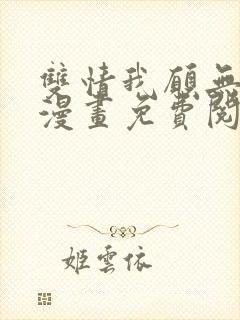 雙情我願無
漫畫免費閱
姬雲依